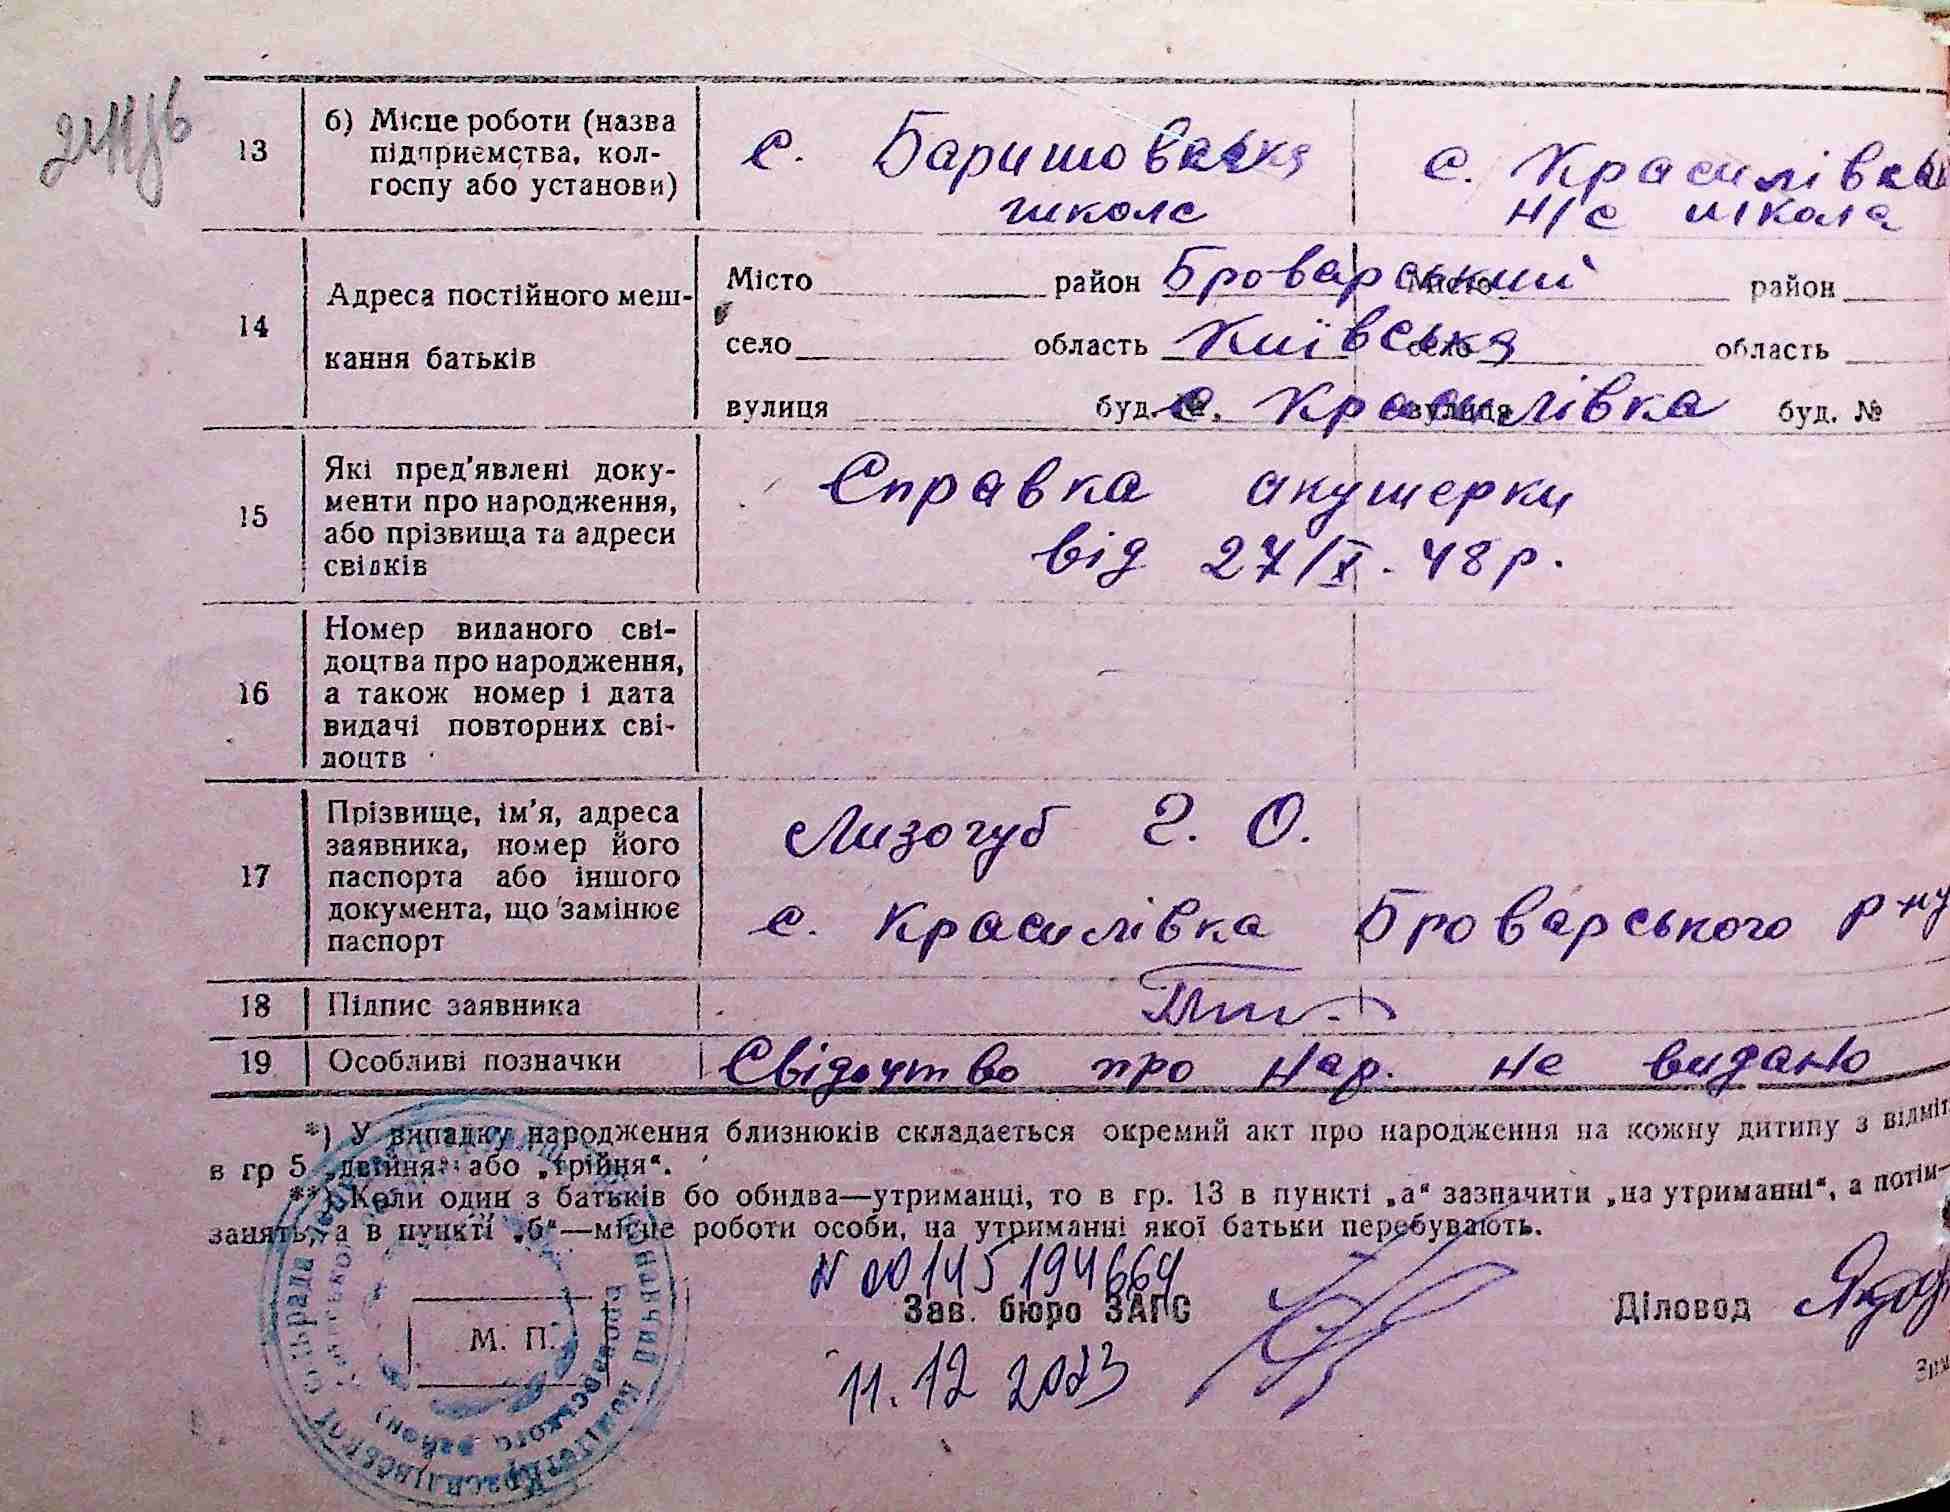 13
б) Місце роботи (назва
підприємства, кол-
госпу або установи)
с. Баришовська
школа
с. Красилівська
н/с школа
14
Адреса постійного меш-
кання батьків
Місто район Броварський Місто район
село область Київська село область
вулиця буд. №. с. Красилівка вулиця буд. №
15
Які пред'явлені доку-
менти про народження,
або прізвища та адреси
свідків
Справка акушерки
від 27/X. 48 р.
16
Номер виданого сві-
доцтва про народження,
а також номер і дата
видачі повторних сві-
доцтв
17
Прізвище, ім'я, адреса
заявника, номер його
паспорта або іншого
документа, що замінює
паспорт
Лизогуб Г. О.
с. Красилівка Броварського р-ну
18 Підпис заявника
19 Особливі позначки Свідоцтво про нар. не видано
*) У випадку народження близнюків складається окремий акт про народження на кожну дитину з відміт
в гр 5 „двійня“ або „трійня“.
**) Коли один з батьків бо обидва—утриманці, то в гр. 13 в пункті „а“ зазначити „на утриманні“, а потім—
занять, а в пункті „б“—місце роботи особи, на утриманні якої батьки перебувають.
N 00145194664
Зав. бюро ЗАГС
Діловод
М. П.
11.12 2023